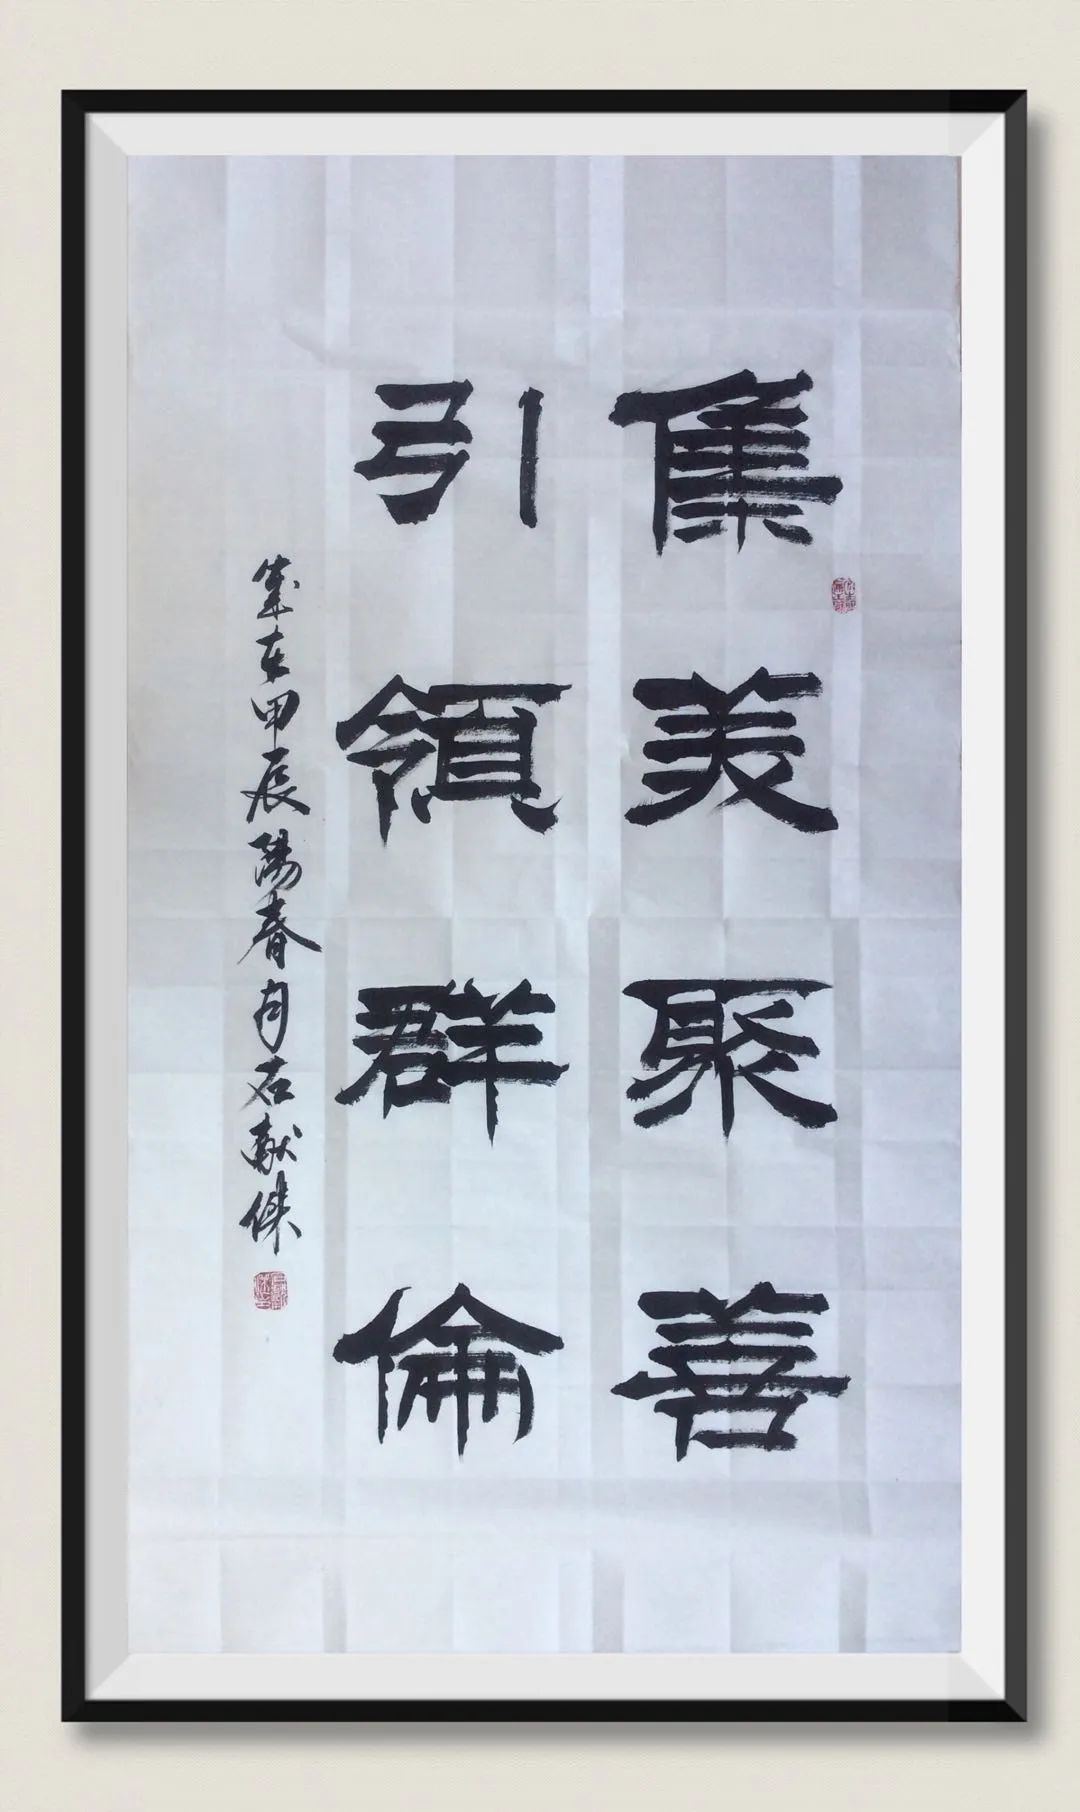 集美聚善
引領群倫
歲在甲辰陽春月石献傑